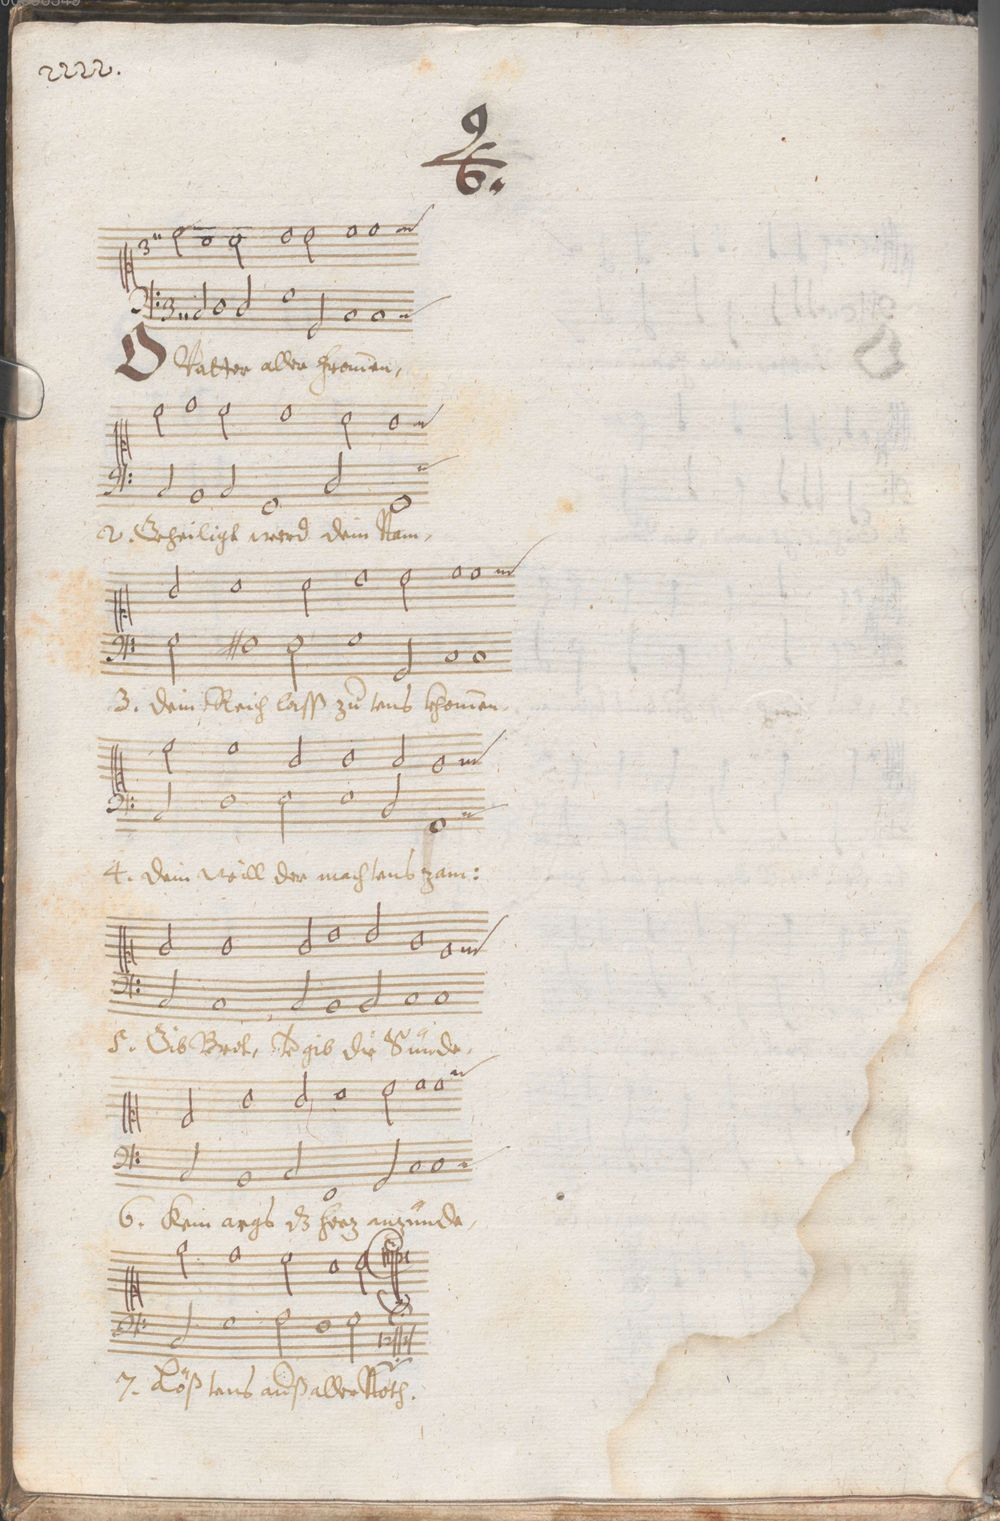 2222.
9
6.
3
3
O Vatter aller fromen,
2. Geheiligt werd dein Nam,
3. Dein Reich lass zu uns khomen.
4. Dein will der mach uns zam:
5. Gib Brot, gib die Sünde,
6. Kein args dz herz anzünde,
7. Löß uns auß aller Nöth.